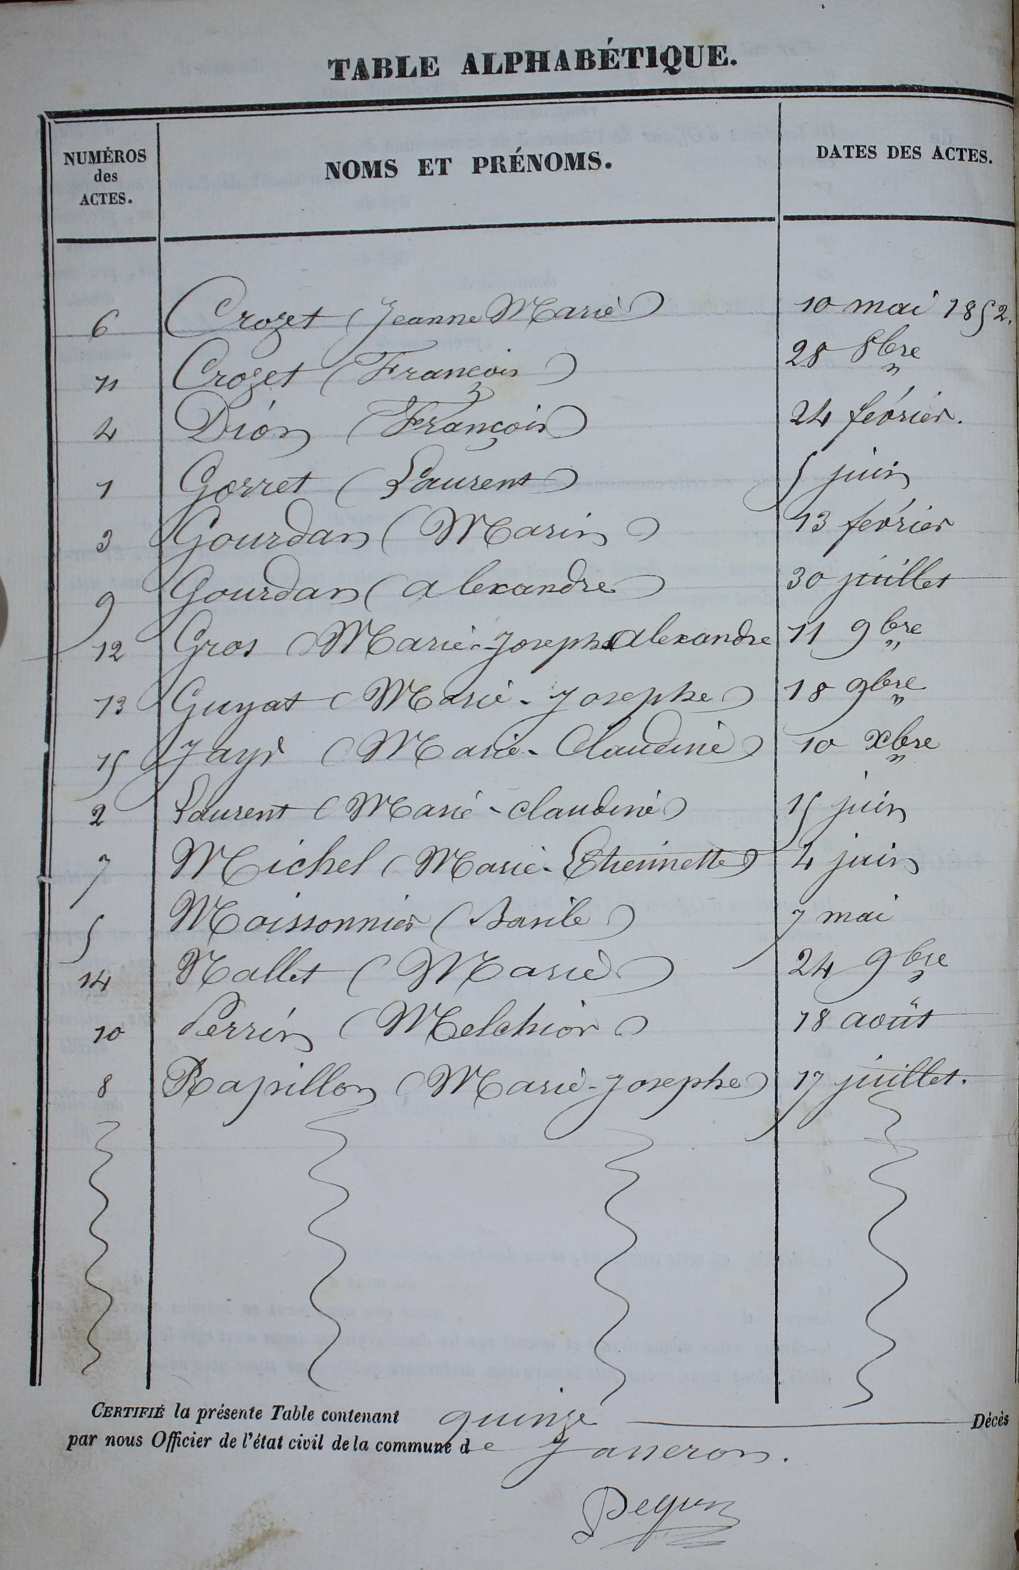 TABLE ALPHABÉTIQUE.
NUMÉROS des ACTES. NOMS ET PRÉNOMS. DATES DES ACTES.
6 Crozet (Jeanne Marie) 10 mai 1852.
11 Crozet (François) 28 8bre
4 Dion (François) 24 février.
1 Gorret (Laurent) 5 juin
3 Gourdan (Marin) 13 février
9 Gourdan (alexandre) 30 juillet
12 Gros (Marie-Josephe alexandre 11 9bre
13 Guyat (Marie-Josephe) 18 9bre
15 Jayr (Marie-Claudine) 10 Xbre
2 Laurent (Marie-claudine) 15 juin
7 Michel (Marie-Etiennette) 4 juin
5 Moissonnier (Basile) 7 mai
14 Nallet (Marie) 24 9bre
10 Perrin (Melchior) 18 août
8 Rapillon (Marie-Josephe) 17 juillet.
CERTIFIÉ la présente Table contenant quinze Décès
par nous Officier de l'état civil de la commune de Jasseron.